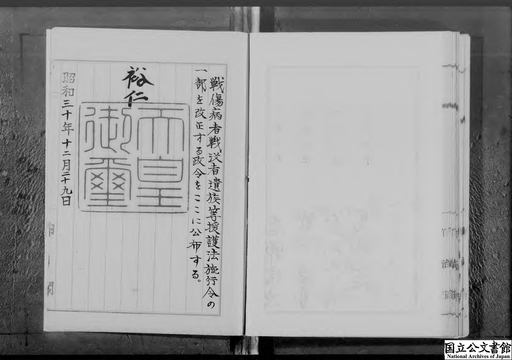 戦傷病者戦没者遺族等援護法施行令の
一部を改正する政令をここに公布する。
裕仁
天皇
御璽
昭和三十年十二月二十九日
国立公文書館
National Archives of Japan